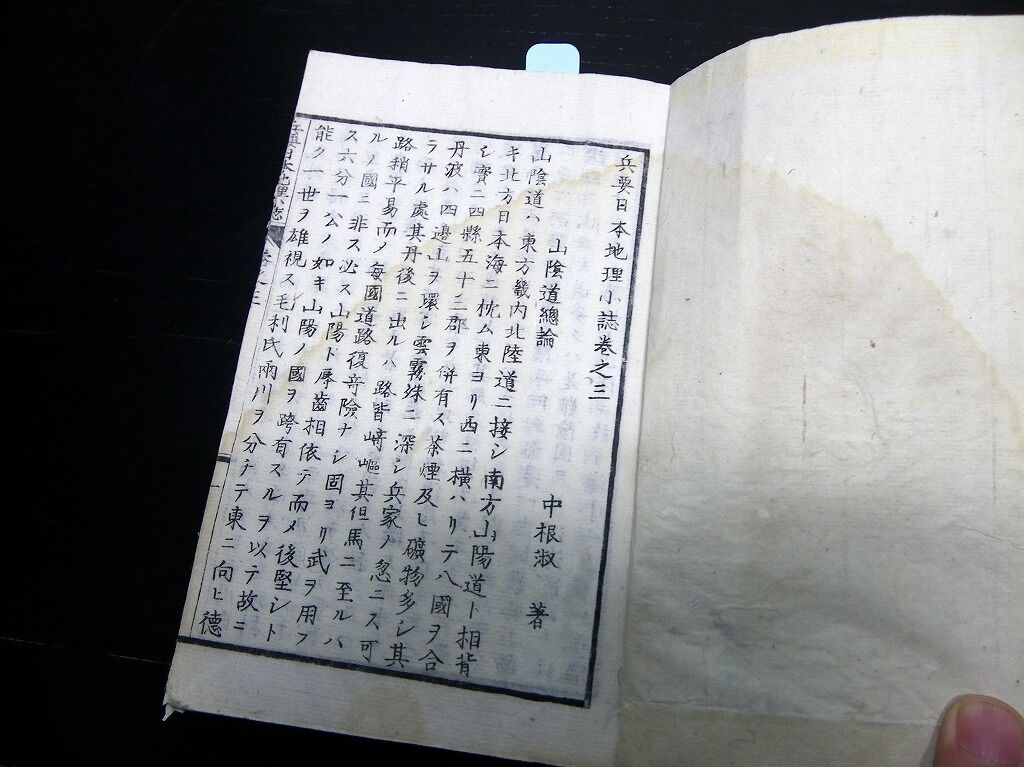 兵要日本地理小誌卷之三
中根淑 著
山陰道總論
山陰道ハ東方畿内北陸道ニ接シ南方山陽道ト相背
キ北方日本海ニ枕ム東ヨリ西ニ横ハリテ八國ヲ合
シ實ニ四縣五十二郡ヲ併有ス茶煙及ヒ礦物多シ其
丹波ハ四邊山ヲ環シ雲霧殊ニ深シ兵家ノ忽ニス可
ラサル處其丹後ニ出ルハ路皆﨑嶇其但馬ニ至ルハ
路稍平易而メ每國道路復竒險ナシ固ヨリ武ヲ用フ
ルノ國ニ非ス必ス山陽ト唇齒相依テ而メ後堅シト
ス六分一公ノ如キ山陽ノ國ヲ跨有スルヲ以テ故ニ
能ク一世ヲ雄視ス毛利氏兩川ヲ分チテ東ニ向ヒ德
兵要日本地理小誌 卷之三 一